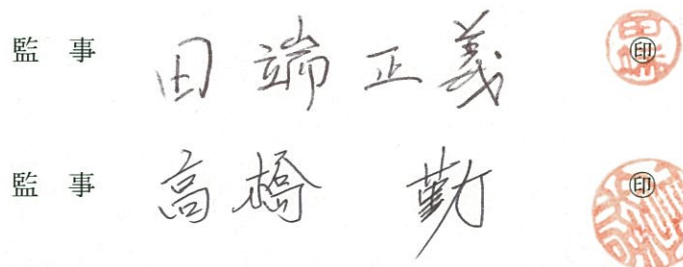 監 事 田 端 正 義 ㊞
監 事 高 橋 勤 ㊞